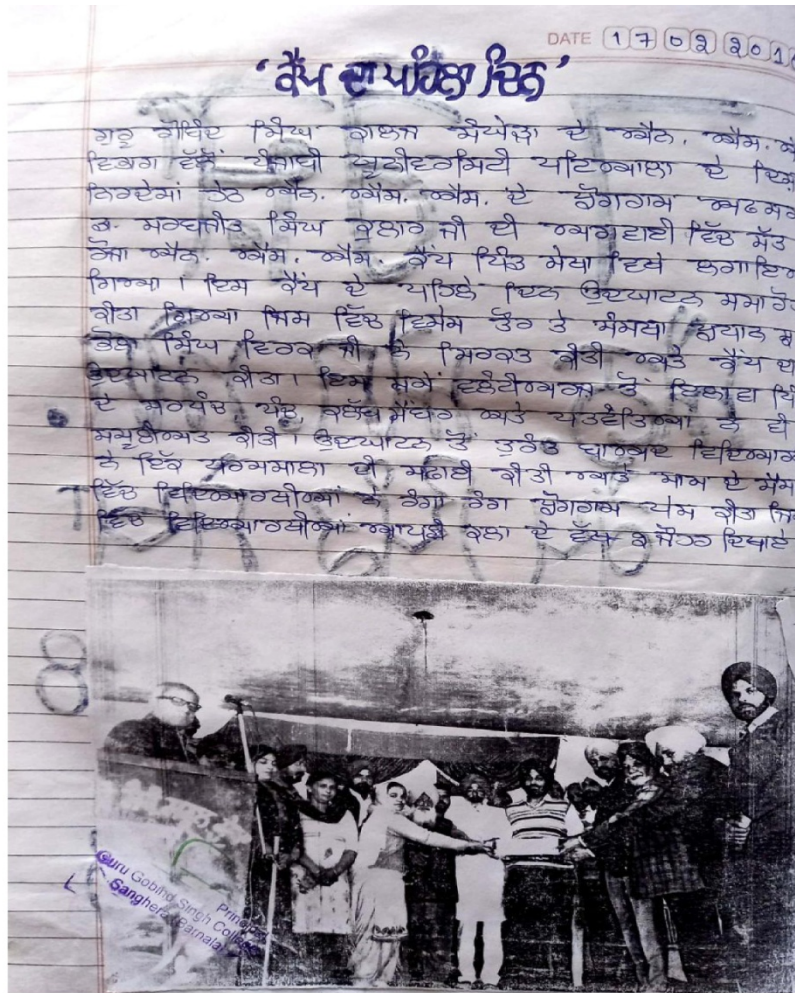 DATE 17 02 201
'ਕੈਂਪ ਦਾ ਪਹਿਲਾ ਦਿਨ'
ਗੁਰੂ ਗੋਬਿੰਦ ਸਿੰਘ ਕਾਲਜ ਸੰਘੇੜਾ ਦੇ ਐਨ. ਐਸ. ਐ
ਵਿਭਾਗ ਵੱਲੋਂ ਪੰਜਾਬੀ ਯੂਨੀਵਰਸਿਟੀ ਪਟਿਆਲਾ ਦੇ ਦਿਸ਼ਾ
ਨਿਰਦੇਸ਼ਾਂ ਹੇਠ ਐਨ. ਐਸ. ਐਸ. ਦੇ ਪ੍ਰੋਗਰਾਮ ਅਫਸਰ
ਡਾ. ਸਰਬਜੀਤ ਸਿੰਘ ਕੁਲਾਰ ਜੀ ਦੀ ਅਗਵਾਈ ਵਿੱਚ ਸੱਤ
ਰੋਜਾ ਐਨ. ਐਸ. ਐਸ. ਕੈਂਪ ਪਿੰਡ ਸੇਖਾ ਵਿਖੇ ਲਗਾਇਆ
ਗਿਆ। ਇਸ ਕੈਂਪ ਦੇ ਪਹਿਲੇ ਦਿਨ ਉਦਘਾਟਨ ਸਮਾਰੋਹ
ਕੀਤਾ ਗਿਆ ਜਿਸ ਵਿੱਚ ਵਿਸ਼ੇਸ਼ ਤੌਰ ਤੇ ਸੰਸਥਾ ਪ੍ਰਧਾਨ ਸ
ਭੋਲਾ ਸਿੰਘ ਵਿਰਕ ਜੀ ਨੇ ਸ਼ਿਰਕਤ ਕੀਤੀ ਅਤੇ ਕੈਂਪ ਦਾ
ਉਦਘਾਟਨ ਕੀਤਾ। ਇਸ ਸਮੇਂ ਵਲੰਟੀਅਰਜ਼ ਤੋਂ ਇਲਾਵਾ ਪਿੰ
ਦੇ ਸਰਪੰਚ ਪੰਚ, ਕਲੱਬ ਮੈਂਬਰ ਅਤੇ ਪਤਵੰਤਿਆਂ ਨੇ ਵੀ
ਸ਼ਮੂਲੀਅਤ ਕੀਤੀ। ਉਦਘਾਟਨ ਤੋਂ ਤੁਰੰਤ ਬਾਅਦ ਵਿਦਿਆਰ
ਨੇ ਇੱਕ ਧਰਮਸ਼ਾਲਾ ਦੀ ਸਫਾਈ ਕੀਤੀ ਅਤੇ ਸ਼ਾਮ ਦੇ ਸੈਸ਼
ਵਿੱਚ ਵਿਦਿਆਰਥੀਆਂ ਨੇ ਰੰਗਾ ਰੰਗ ਪ੍ਰੋਗਰਾਮ ਪੇਸ਼ ਕੀਤਾ ਜਿਸ
ਵਿੱਚ ਵਿਦਿਆਰਥੀਆਂ ਆਪਣੀ ਕਲਾ ਦੇ ਵੱਖ ਜੌਹਰ ਦਿਖਾਏ
Principal
Guru Gobind Singh College
Sanghera (Barnala)